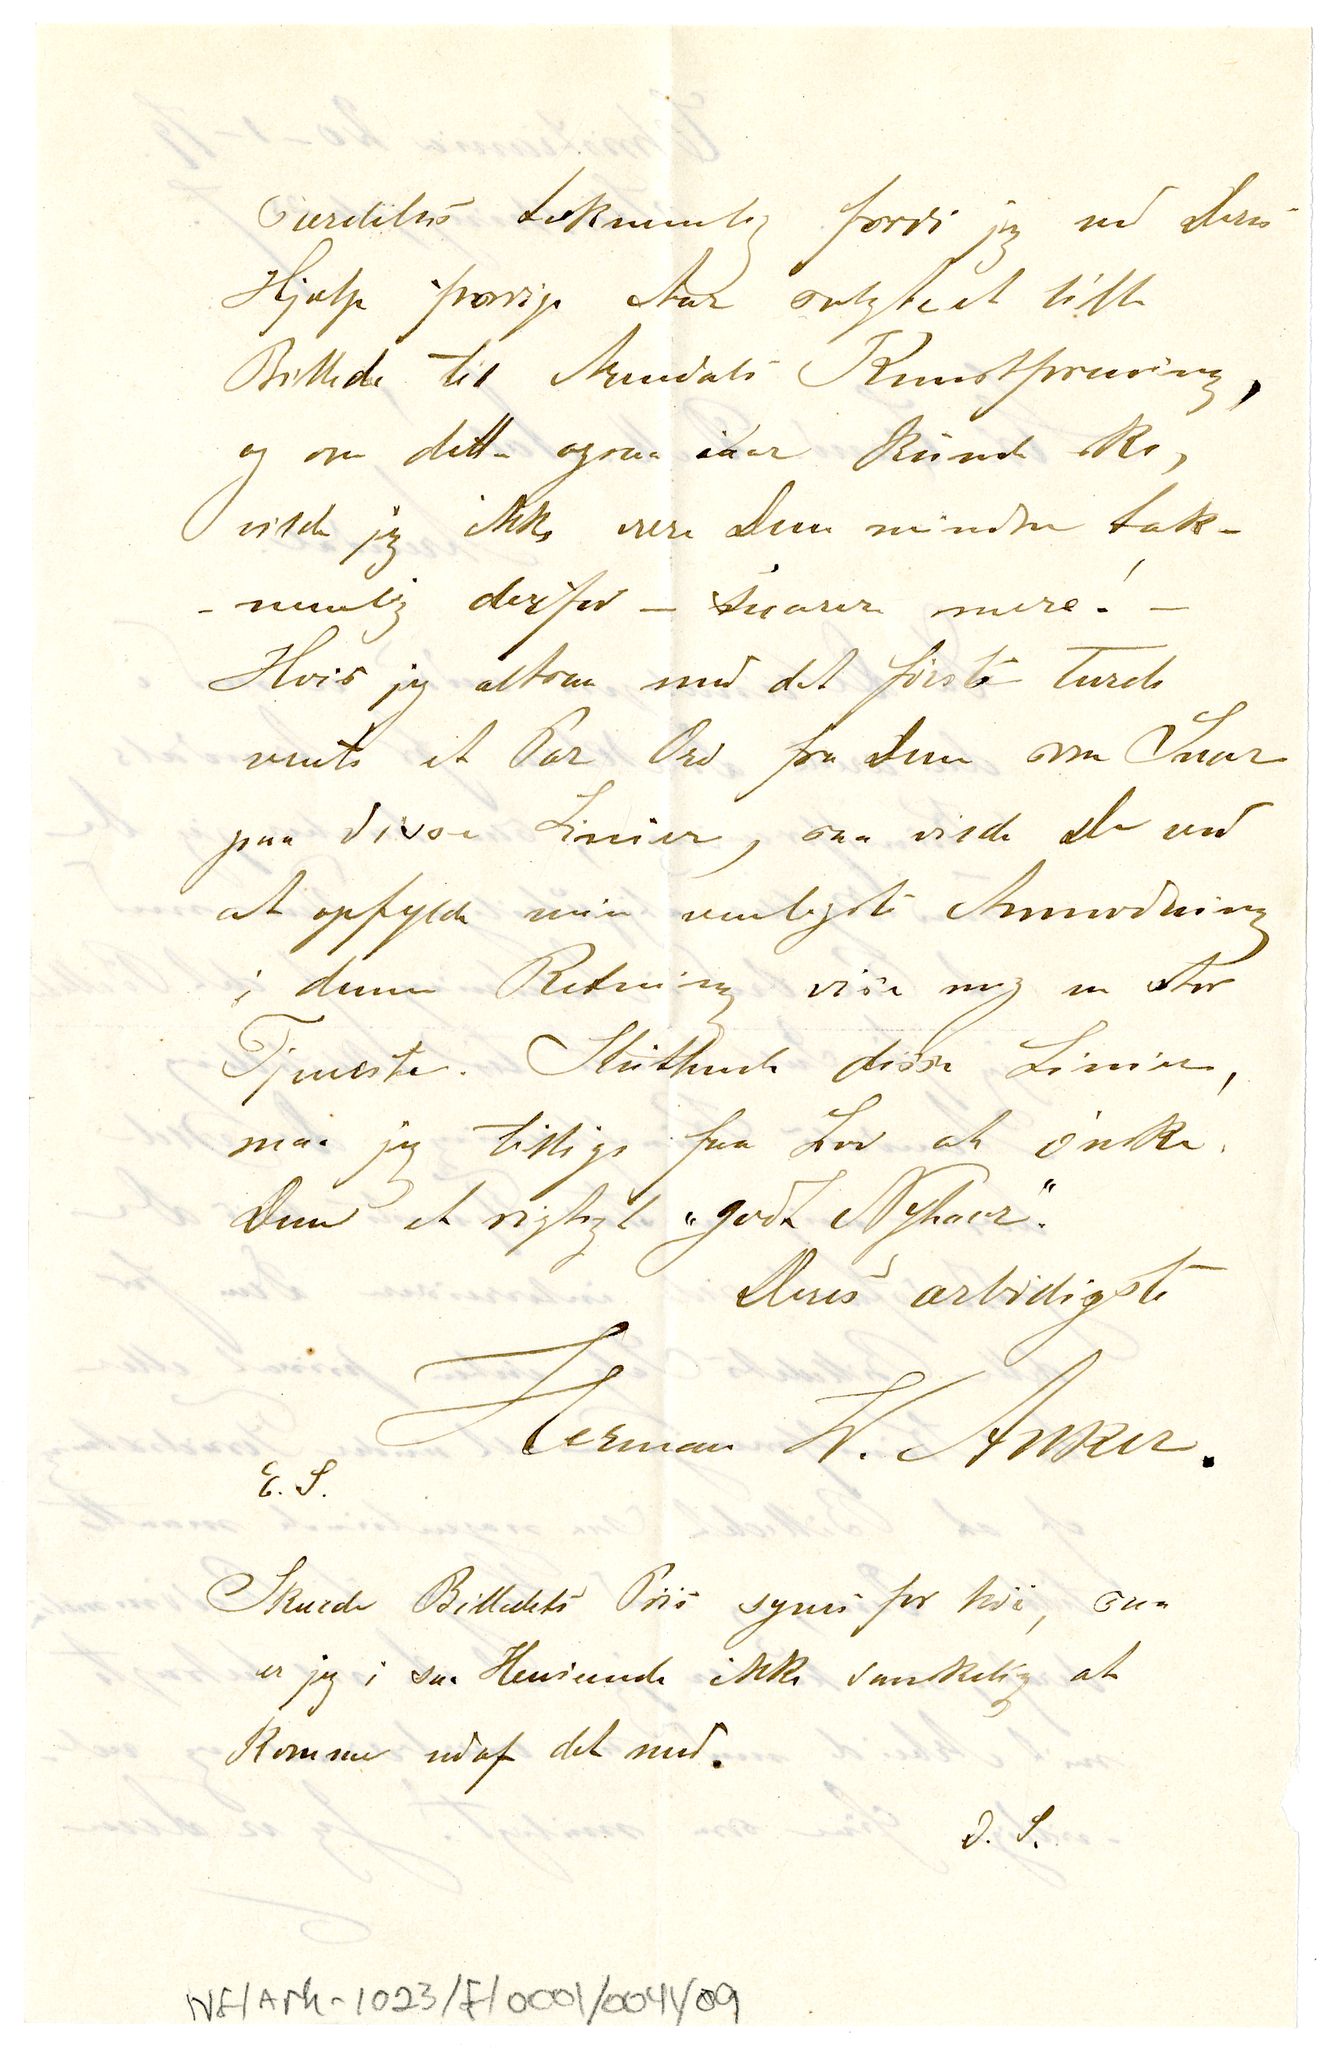 Særdeles taknemlig fordi jeg ved Deres
Hjælp iforrige Aar solgte et lidet
Billede til Arendals Kunstforening,
og om dette ogsaa iaar kunde ske,
vilde jeg ikke være Dem mindre tak-
-nemlig derfor – snarere mere! –
Hvis jeg altsaa med det første turde
vente et Par Ord fra Dem som Svar
paa disse Linier, saa vilde De ved
at opfylde min venligste Anmodning
i denne Retning vise mig en stor
Tjeneste. Sluttende disse Linier,
maa jeg tillige faa Lov at ønske
Dem et rigtigt "godt Nytaar".
Deres ærbødigste
Herman W. Anker.
E. S.
Skulde Billedets Pris synes for høi, saa
er jeg i saa Henseende ikke vankelig at
komme udaf det med.
D. S.
NF/Ark-1023/F/0001/0041/09